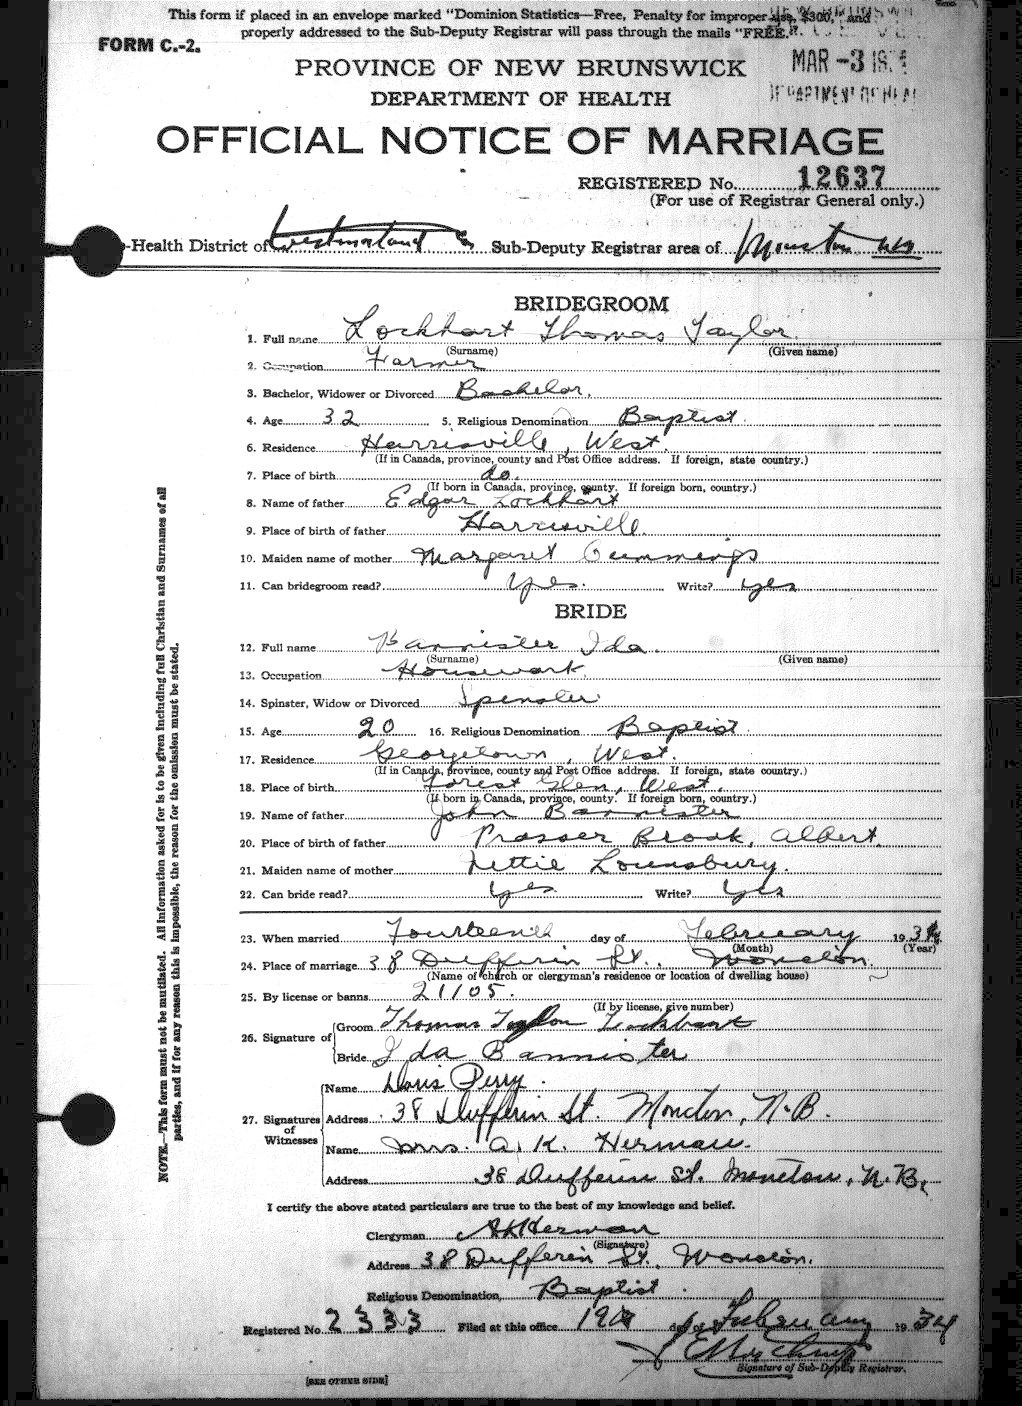 This form if placed in an envelope marked "Dominion Statistics—Free, Penalty for improper use, $300," and
properly addressed to the Sub-Deputy Registrar will pass through the mails "FREE."
FORM C.-2.
MAR -3
PROVINCE OF NEW BRUNSWICK
DEPARTMENT OF HEALTH
DEPARTMENT OF HEAL
OFFICIAL NOTICE OF MARRIAGE
REGISTERED No. 12637
(For use of Registrar General only.)
-Health District of Westmorland Sub-Deputy Registrar area of Moncton
BRIDEGROOM
1. Full name Lockhart Thomas Taylor
(Surname) (Given name)
2. Occupation Farmer
3. Bachelor, Widower or Divorced Bachelor.
4. Age 32 5. Religious Denomination Baptist
6. Residence Harrisville, West.
(If in Canada, province, county and Post Office address. If foreign, state country.)
7. Place of birth do.
(If born in Canada, province, county. If foreign born, country.)
8. Name of father Edgar Lockhart
9. Place of birth of father Harrisville
10. Maiden name of mother Margaret Cummings
11. Can bridegroom read? Yes. Write? yes
BRIDE
12. Full name Bannister Ida.
(Surname) (Given name)
13. Occupation Housework
14. Spinster, Widow or Divorced Spinster
15. Age 20 16. Religious Denomination Baptist
17. Residence Georgetown, West.
(If in Canada, province, county and Post Office address. If foreign, state country.)
18. Place of birth Forest Glen, West.
(If born in Canada, province, county. If foreign born, country.)
19. Name of father John Bannister
20. Place of birth of father Prosser Brook, Albert.
21. Maiden name of mother Nettie Lounsbury.
22. Can bride read? Yes. Write? Yes
23. When married Fourteenth day of February 1934
(Month) (Year)
24. Place of marriage 38 Dufferin St., Moncton.
(Name of church or clergyman's residence or location of dwelling house)
25. By license or banns 21105.
(If by license, give number)
26. Signature of Groom Thomas Taylor Lockhart
Bride Ida Bannister
27. Signatures of Witnesses Name Doris Perry.
Address 38 Dufferin St. Moncton, N.B.
Name Mrs. A. K. Herman.
Address 38 Dufferin St. Moncton, N.B.
I certify the above stated particulars are true to the best of my knowledge and belief.
Clergyman A K Herman
(Signature)
Address 38 Dufferin St., Moncton.
Religious Denomination Baptist
Registered No. 2333 Filed at this office 19 day of February 1934
Signature of Sub-Deputy Registrar.
[SEE OTHER SIDE]
NOTE.—This form must not be mutilated. All information asked for is to be given including full Christian and Surnames of all
parties, and if for any reason this is impossible, the reason for the omission must be stated.